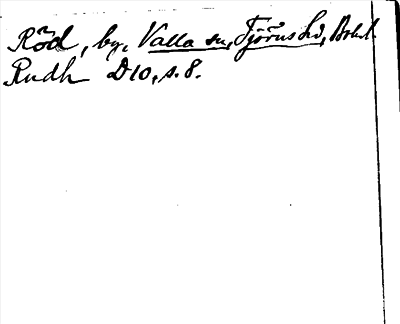 Röd, by, Valla sn, Tjörns hd, Bohusl.
Rudh D10, s. 8.